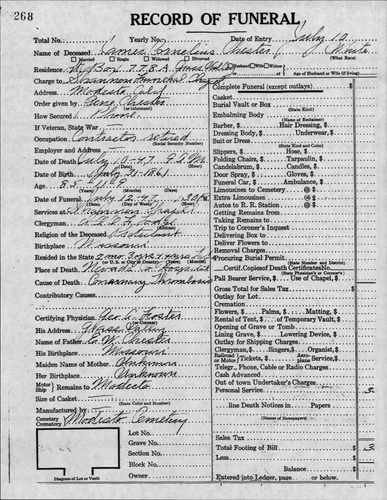 268
RECORD OF FUNERAL
Total No. Yearly No. Date of Entry July 10
Name of Deceased James Cornelius Chester White
Married Single Widowed Divorced (What Race)
Residence Rt 1 Box 778A Husband Wife Widow
Age of Husband or Wife (if living)
Charge to Shannon Memorial Chapel
Address Modesto, Calif
Order given by Gene Chester
(or informant)
How Secured Phone
If Veteran, State War
Occupation Contractor retired
(Social Security Number)
Employer and Address
Date of Death July 10-47 9 P.M.
Date of Birth July 21-1861
Age 85
Date of Funeral July 12-47 1:30 PM
Services at Shannon Chapel
Clergyman
Religion of the Deceased Protestant
Birthplace Missouri
Resided in the State
(City or U.S.) (Years) (Months)
Place of Death Nevada Co Hospital
Cause of Death Coronary Thrombosis
Contributory Causes
Certifying Physician Geo. A. Foster
(or Coroner)
His Address Grass Valley
Name of Father C. W. Chester
His Birthplace Missouri
Maiden Name of Mother Unknown
Her Birthplace Unknown
Motor Ship Remains to Modesto
Size of Casket
(State Color and Number)
Manufactured by
Cemetery Crematory Modesto Cemetery
Lot No.
Grave No.
Section No.
Block No.
Owner
Diagram of Lot or Vault
Complete Funeral (except outlays)
Casket
Burial Vault or Box
(State Kind)
Embalming Body
(Name of Embalmer)
Barber, Hair Dressing,
Dressing Body, Underwear,
Suit or Dress
(State Kind and Color)
Slippers, Hose,
Folding Chairs, Tarpaulin,
Candelabrum, Candles,
Door Spray, Gloves,
Funeral Car, Ambulance,
Limousines to Cemetery @
Extra Limousines @
Autos to R. R. Station @
Getting Remains from
Taking Remains to
Trip to Coroner's Inquest
Delivering Box to
Deliver Flowers to
Removal Charges
Procuring Burial Permit
(State Number and District)
Certif. Copies of Death Certificates No.
(State Physician's or Coroner's)
Pall Bearer Service, Use of Chapel,
Gross Total for Sales Tax
Outlay for Lot
Cremation
Flowers, Palms, Matting,
Rental of Tent, or Temporary Vault,
Opening of Grave or Tomb
Lining Grave, Lowering Device,
Outlay for Shipping Charges
Clergyman, Singers, Organist,
Railroad or Motor Tickets, Aeroplane Service,
Telegr., Phone, Cable or Radio Charges
Cash Advanced
Out of town Undertaker's Charges
Personal Service
line Death Notices in Papers
Sales Tax
Total Footing of Bill
Less
Balance
Entered into Ledger, page or below.